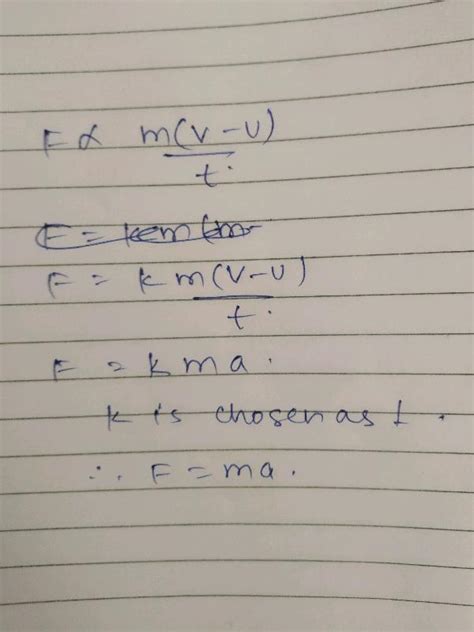 F ∝ m(v-u)
t.
F = k m(v-u)
t.
F = k m a.
k is chosen as 1.
∴ F = ma.